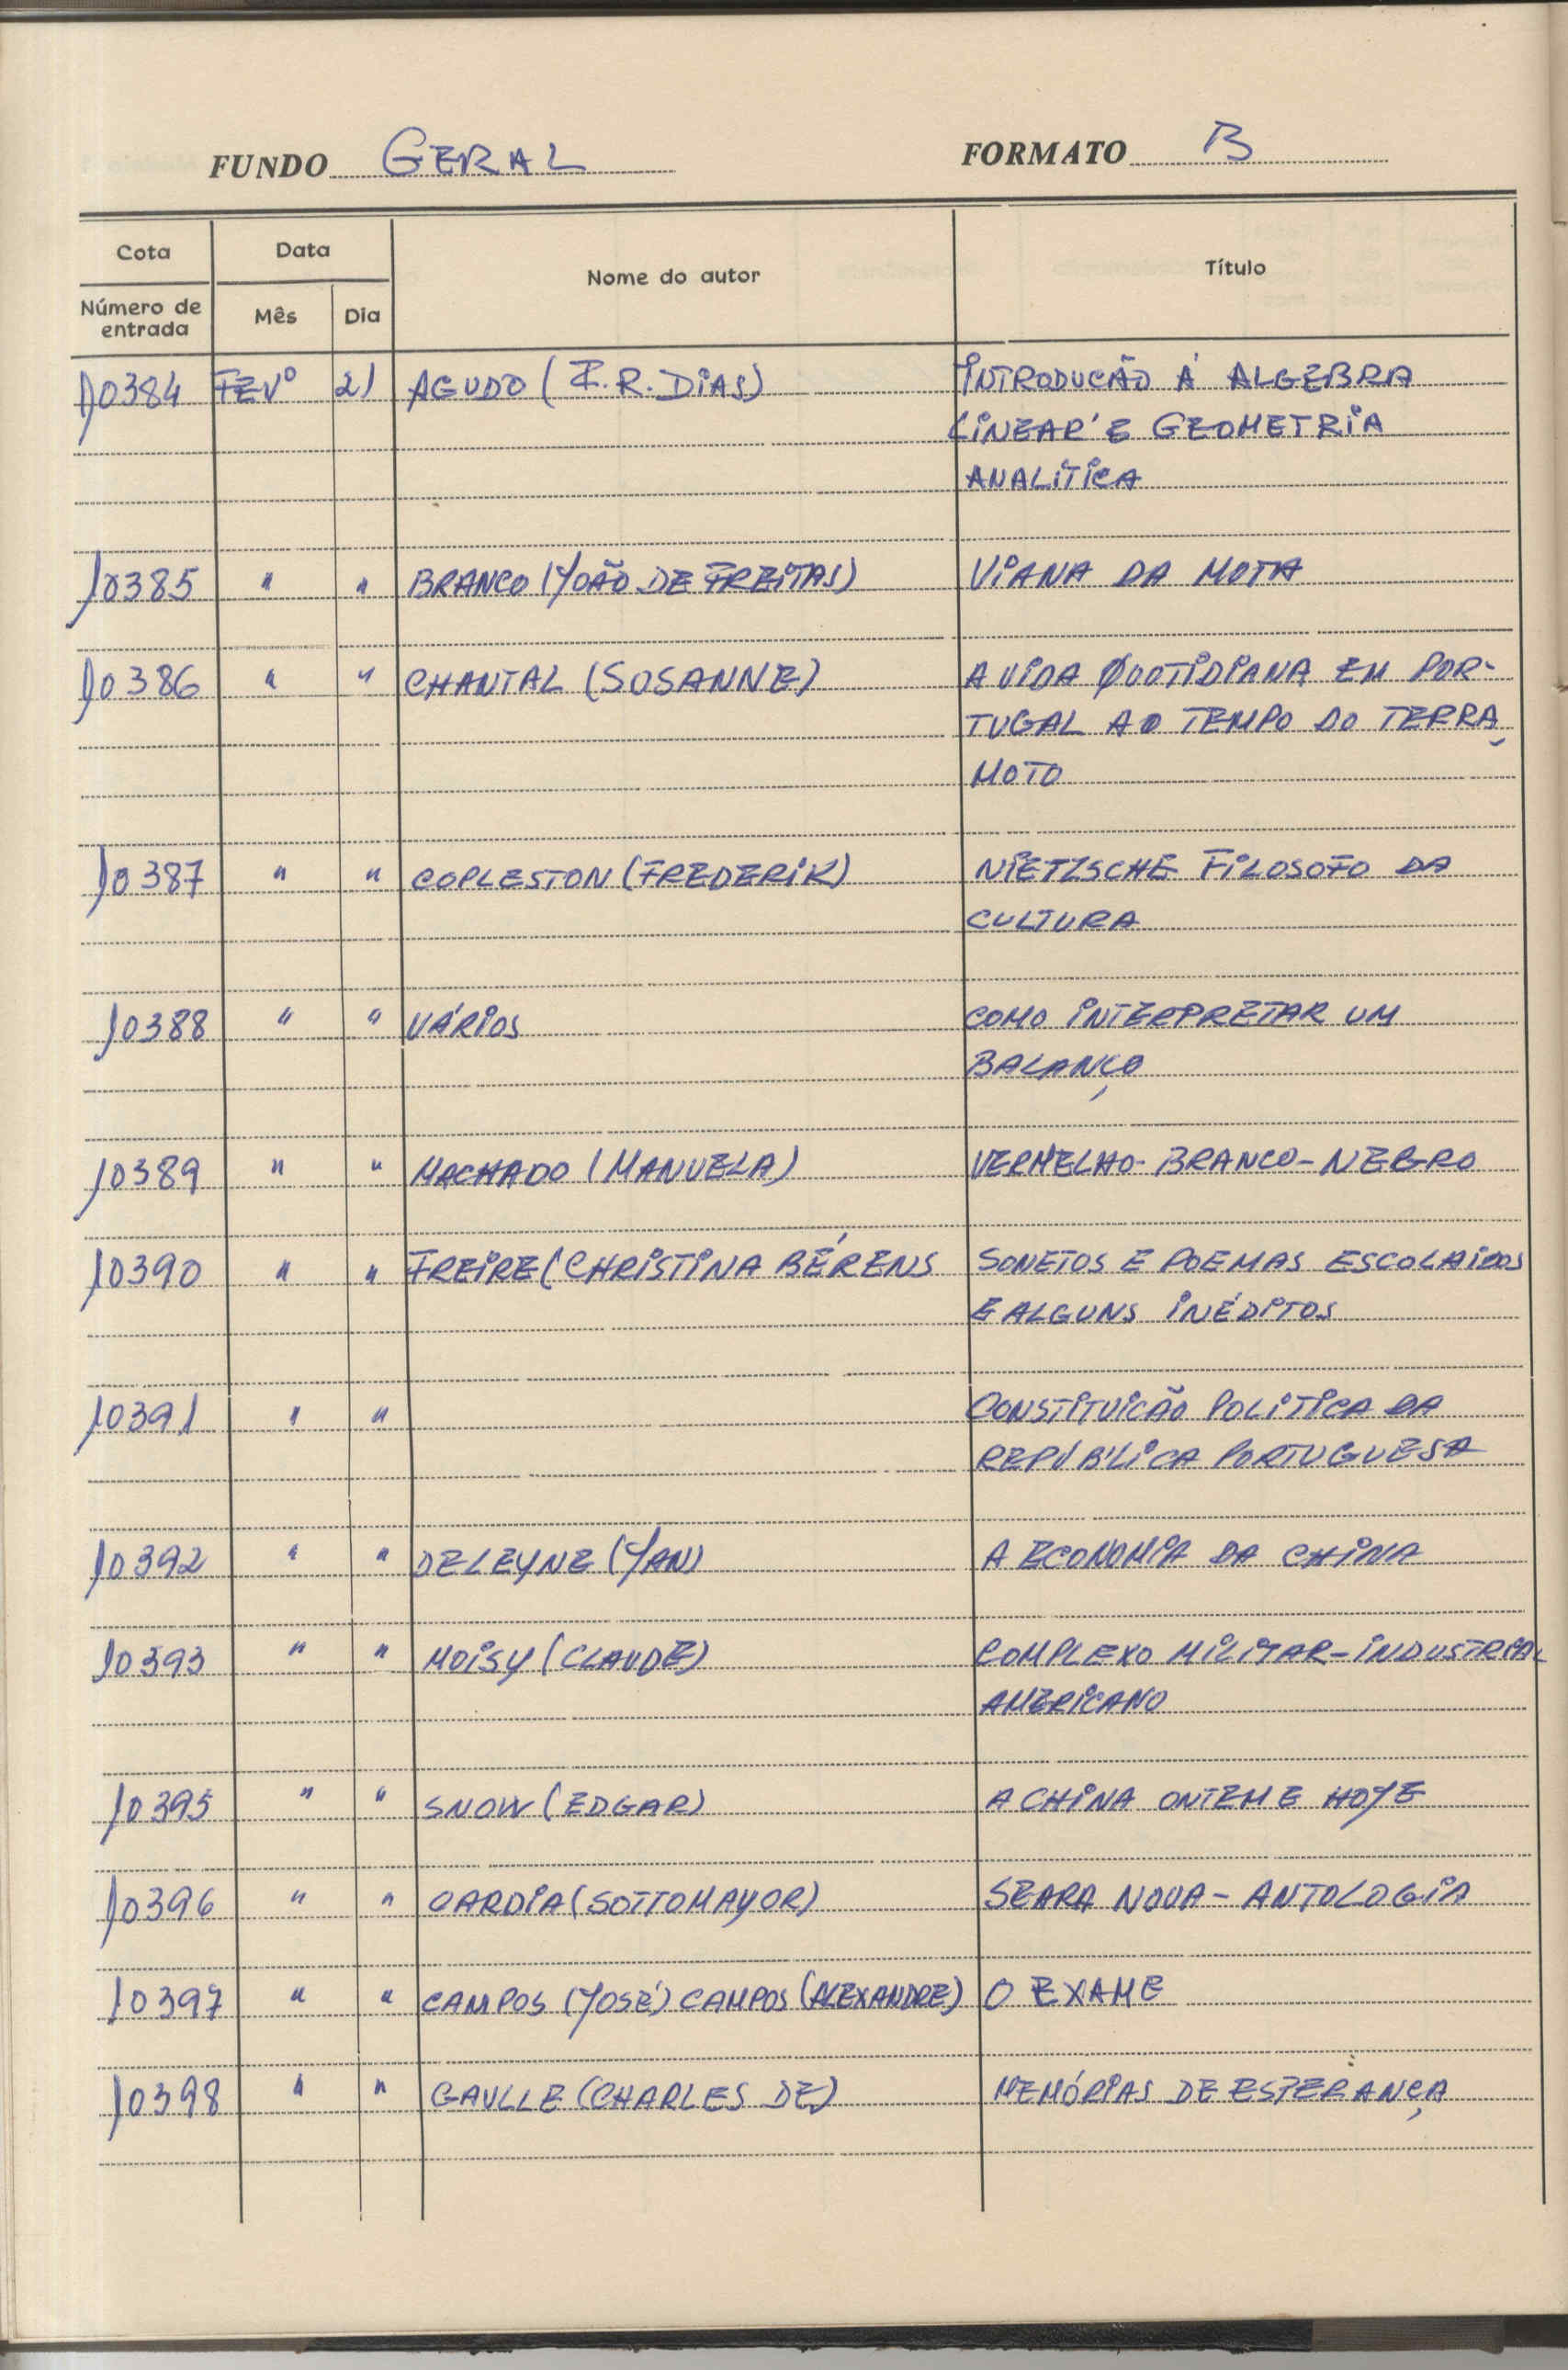 FUNDO GERAL FORMATO B
Cota Data Nome do autor Título
Número de entrada Mês Dia
10384 FEVº 21 AGUDO (F. R. DIAS) INTRODUCÃO Á ALGEBRA
LINEAR E GEOMETRIA
ANALITICA
10385 " " BRANCO (JOÃO DE FREITAS) VIANA DA MOTA
10386 " " CHANTAL (SOSANNE) A VIDA QUOTIDIANA EM POR-
TUGAL AO TEMPO DO TERRA
MOTO
10387 " " COPLESTON (FREDERIK) NIETZSCHE FILOSOFO DA
CULTURA
10388 " " VÁRIOS COMO INTERPRETAR UM
BALANÇO
10389 " " MACHADO (MANUELA) VERMELHO-BRANCO-NEGRO
10390 " " FREIRE (CHRISTINA BÉRENS SONETOS E POEMAS
E ALGUNS INÉDITOS
10391 " " CONSTITUICÃO POLITICA DA
REPÚBLICA PORTUGUESA
10392 " " DELEYNE (JAN) A ECONOMIA DA CHINA
10393 " " MOISY (CLAUDE) COMPLEXO MILITAR-INDUSTRIAL
AMERICANO
10395 " " SNOW (EDGAR) A CHINA ONTEM E HOJE
10396 " " CARDIA (SOTTOMAYOR) SEARA NOVA - ANTOLOGIA
10397 " " CAMPOS (JOSÉ) CAMPOS (ALEXANDRE) O EXAME
10398 " " GAULLE (CHARLES DE) MEMÓRIAS DE ESPERANÇA